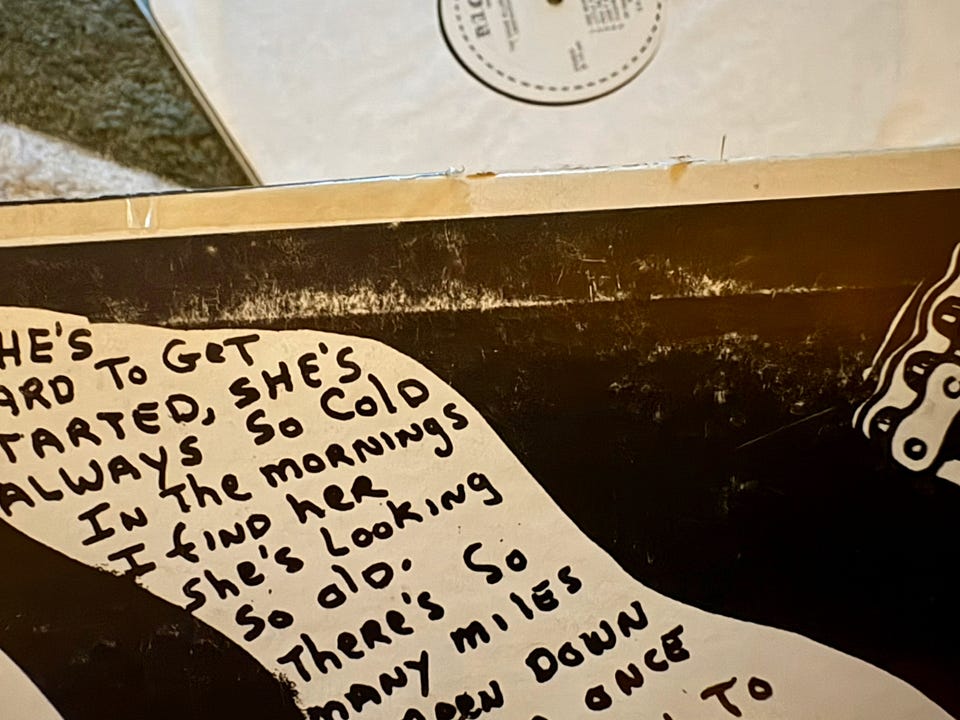 HE'S
ARD To GeT
TARTED, SHE'S
ALWAYS So ColD
In The moRNINgS
I fIND heR
She's LookiNg
So olD.
There's So
mANY mILES
DOWN
ONCE
To